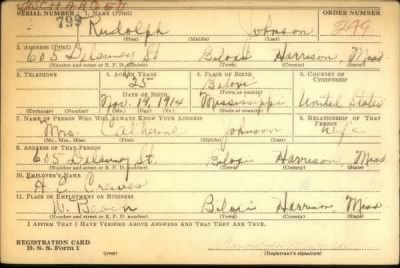 DISCH. A.H.G.
SERIAL NUMBER 1. NAME (Print) ORDER NUMBER
799 Rudolph Johnson 299
(First) (Middle) (Last)
2. ADDRESS (Print)
605 Delauney St Biloxi Harrison Miss
(Number and street or R. F. D. number) (Town) (County) (State)
3. TELEPHONE 4. AGE IN YEARS 5. PLACE OF BIRTH 6. COUNTRY OF CITIZENSHIP
25 Biloxi
DATE OF BIRTH (Town or county)
Nov. 19, 1914 Mississippi United States
(Exchange) (Number) (Mo.) (Day) (Yr.) (State or country)
7. NAME OF PERSON WHO WILL ALWAYS KNOW YOUR ADDRESS 8. RELATIONSHIP OF THAT PERSON
Mrs. Catherine Johnson Wife
(Mr., Mrs., Miss) (First) (Middle) (Last)
9. ADDRESS OF THAT PERSON
605 Delauney St. Biloxi Harrison, Miss
(Number and street or R. F. D. number) (Town) (County) (State)
10. EMPLOYER'S NAME
A. E.
11. PLACE OF EMPLOYMENT OR BUSINESS
W. Beach Biloxi Harrison, Miss
(Number and street or R. F. D. number) (Town) (County) (State)
I AFFIRM THAT I HAVE VERIFIED ABOVE ANSWERS AND THAT THEY ARE TRUE.
REGISTRATION CARD
D. S. S. Form 1 (over) (Registrant's signature)